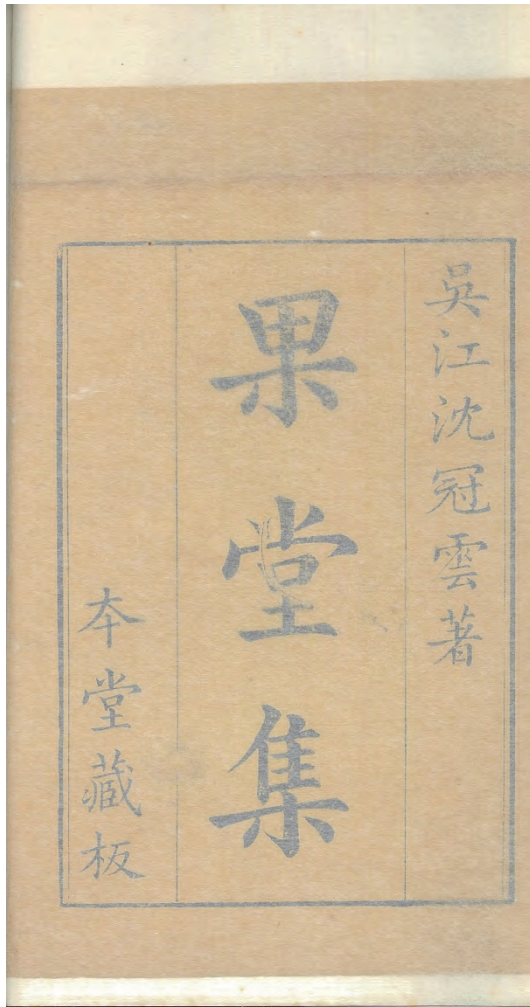 吳江沈冠雲著
果堂集
本堂藏板